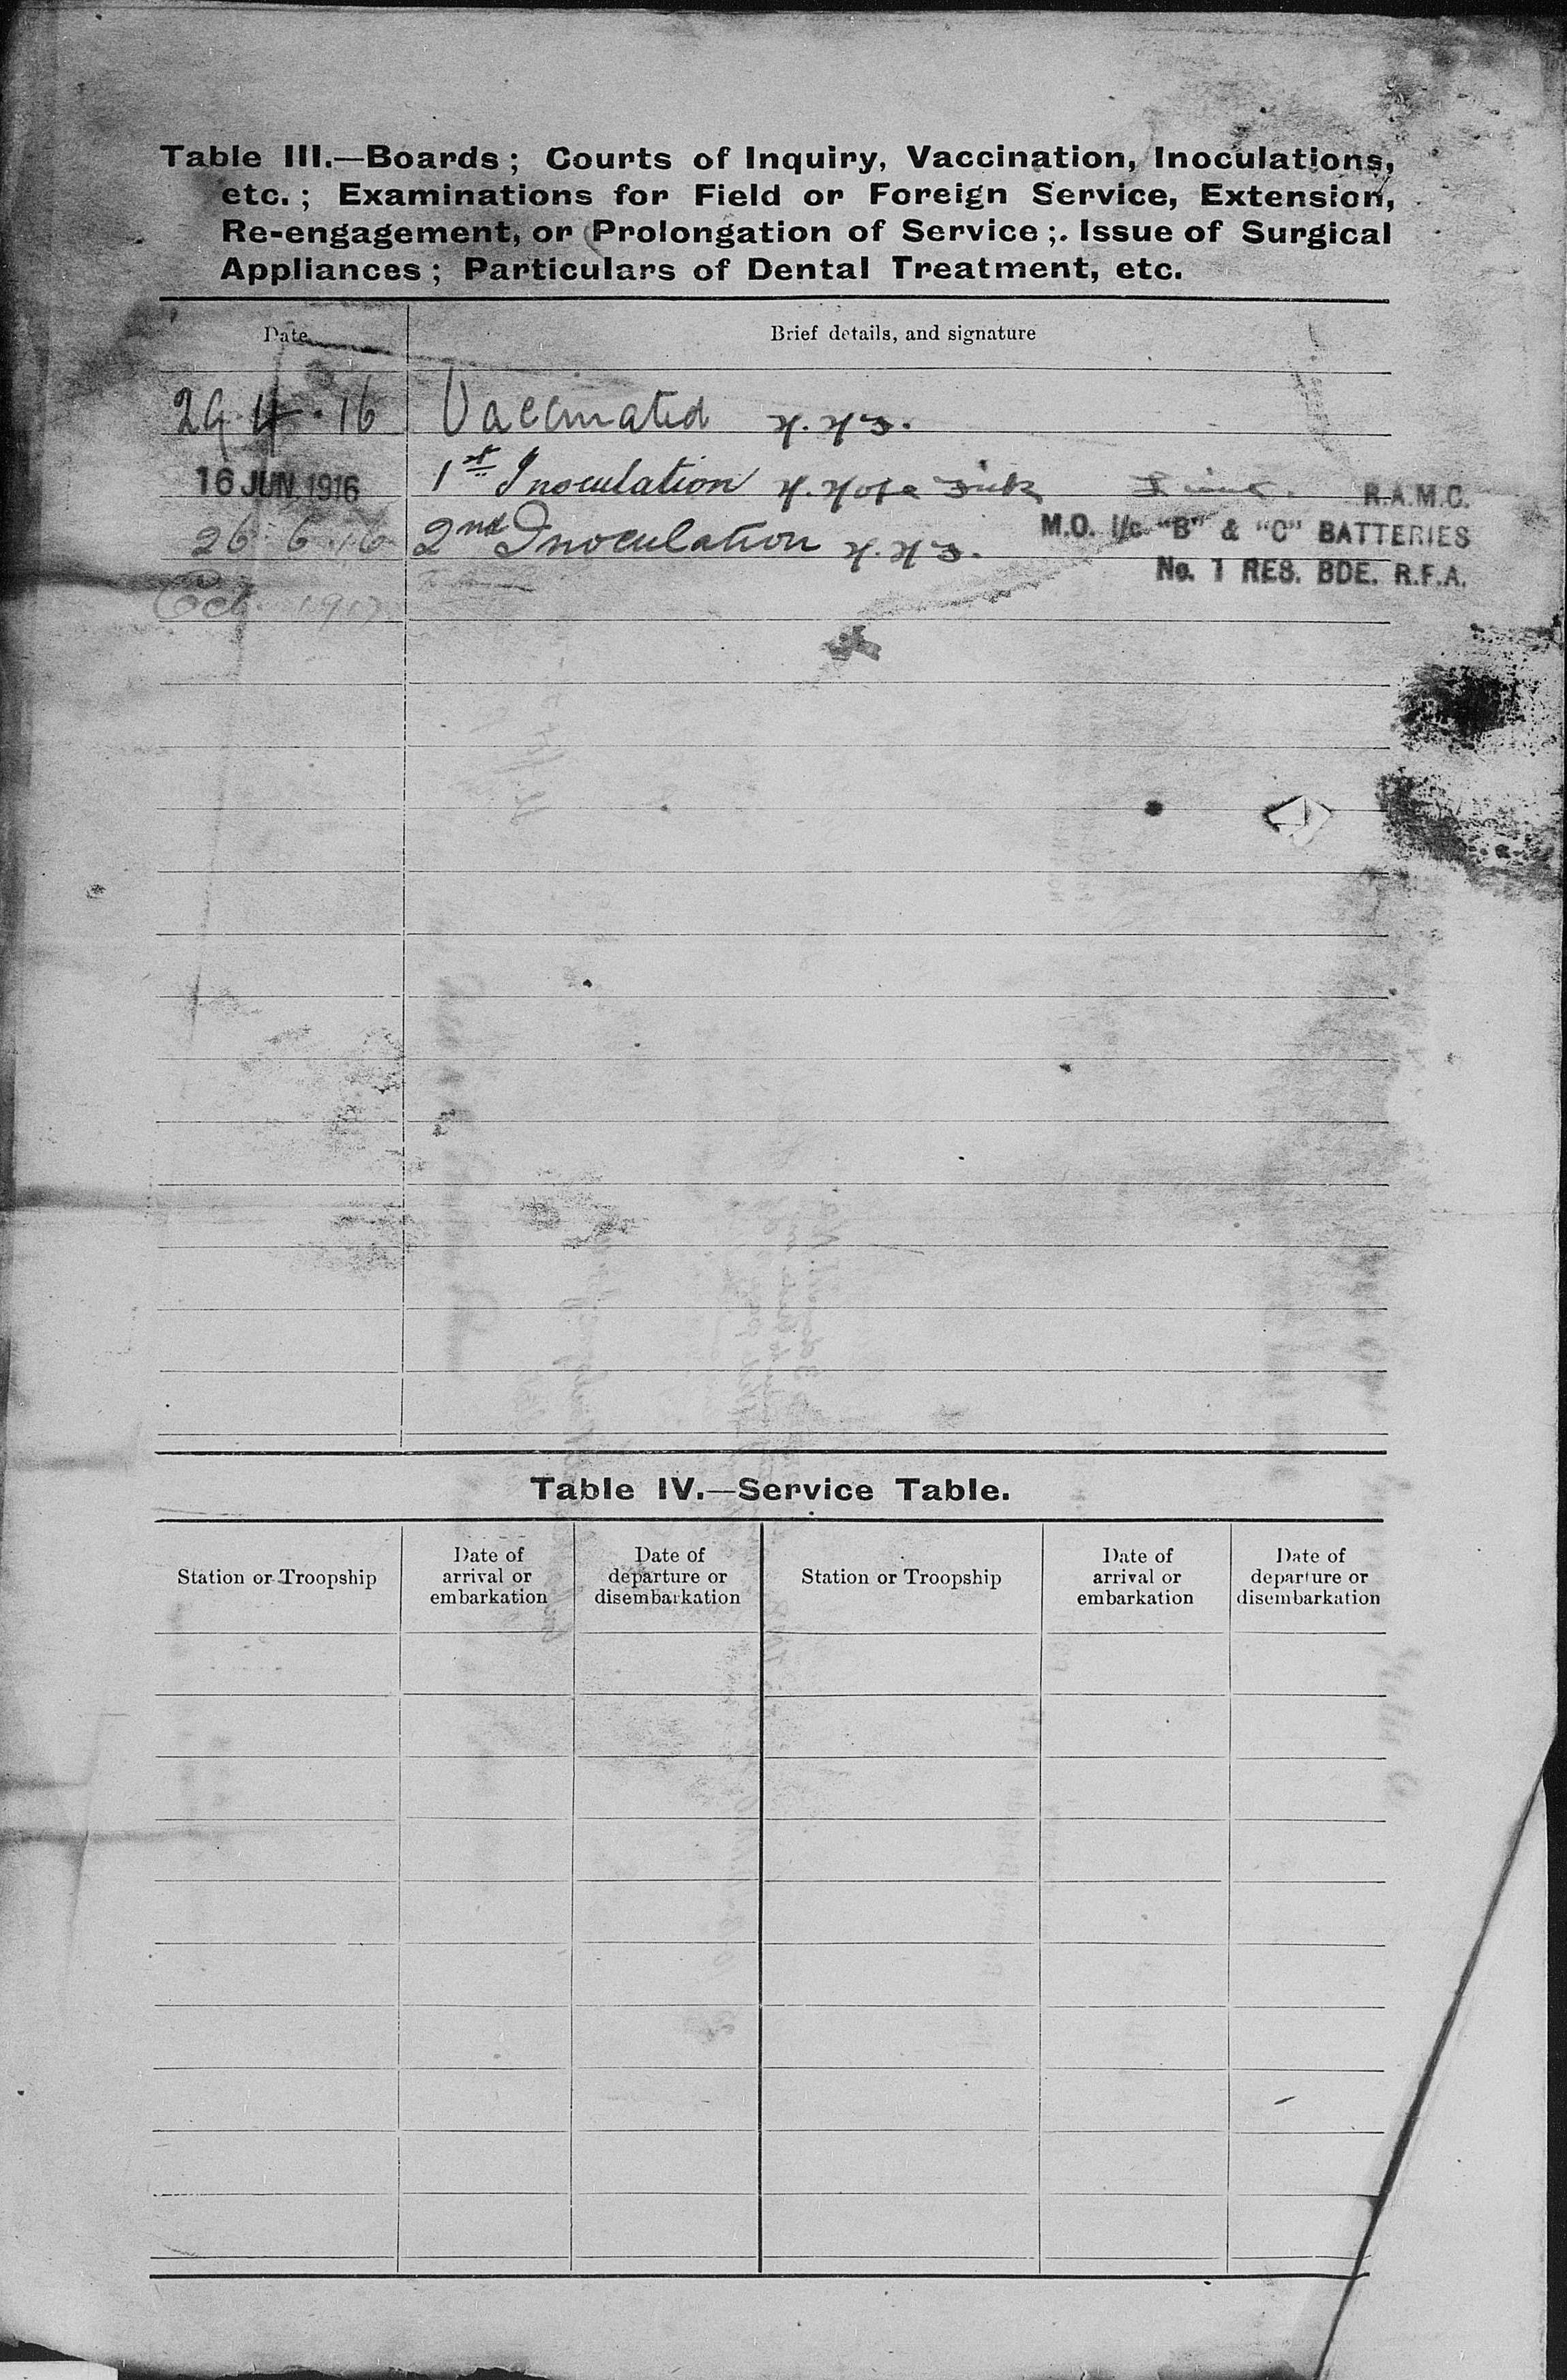 Table III.—Boards; Courts of Inquiry, Vaccination, Inoculations,
etc.; Examinations for Field or Foreign Service, Extension,
Re-engagement, or Prolongation of Service; Issue of Surgical
Appliances; Particulars of Dental Treatment, etc.
Date Brief details, and signature
29.4.16 Vaccinated H.H.S.
16 JUN. 1916 1st Inoculation H. R.A.M.C.
M.O. I/c "B" & "C" BATTERIES
26.6.16 2nd Inoculation H.H.S.
No. 1 RES. BDE. R.F.A.
Oct. 1917
Table IV.—Service Table.
Station or Troopship Date of arrival or embarkation Date of departure or disembarkation Station or Troopship Date of arrival or embarkation Date of departure or disembarkation